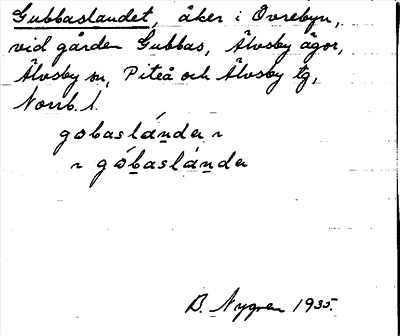 Gubbaslandet, åker i Övrebyn,
vid gården Gubbas, Älvsby ägor,
Älvsby sn, Piteå och Älvsby tg,
Norrb. l.
gobaslánder ~
~ góbaslànder
B. Nygren 1935.